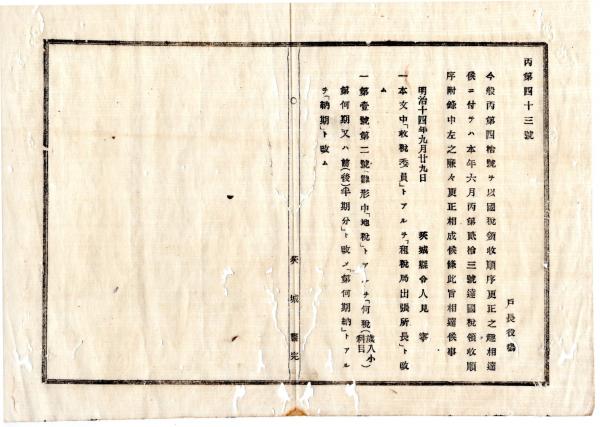 丙第四十三號
戸長役塲
今般丙第四拾號ヲ以國税領收順序更正之趣相達
候ニ付テハ本年六月丙第貳拾三號達國税領收順
序附錄中左之廉々更正相成候條此旨相達候事
明治十四年九月廿九日
茨城縣令人見寧
一本文中「收税委員」トアルヲ「租税局出張所長」ト改
一第壹號第二號雛形中「地税」トアルヲ「何税(歳入小科目)
第何期又ハ前(後)半期分」ト改メ「第何期納」トアル
ヲ「納期」ト改ム
茨城縣